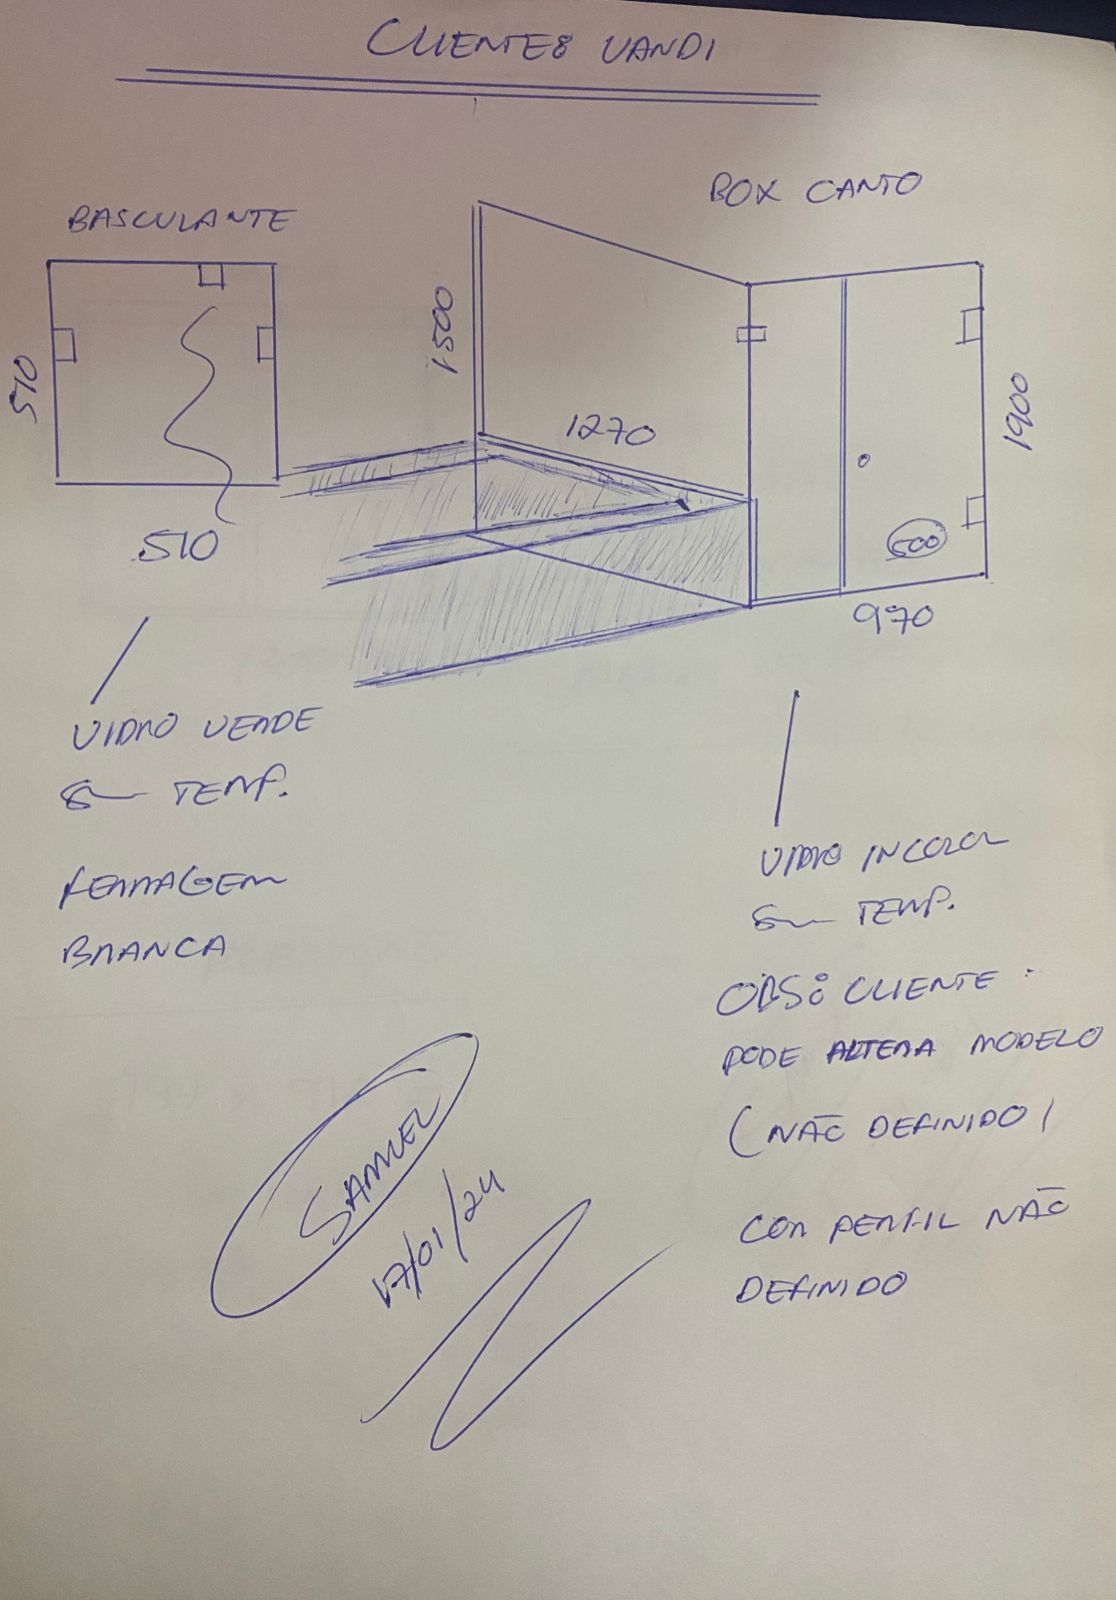 CLIENTE: VANDI
BASCULANTE
510
510
VIDRO VERDE
8mm TEMP.
FERRAGEM
BRANCA
BOX CANTO
1500
1270
1900
500
970
VIDRO INCOLOR
8mm TEMP.
OBS: CLIENTE:
PODE ALTERA MODELO
(NÃO DEFINIDO)
COR PERFIL NÃO
DEFINIDO
SAMUEL
17/01/24